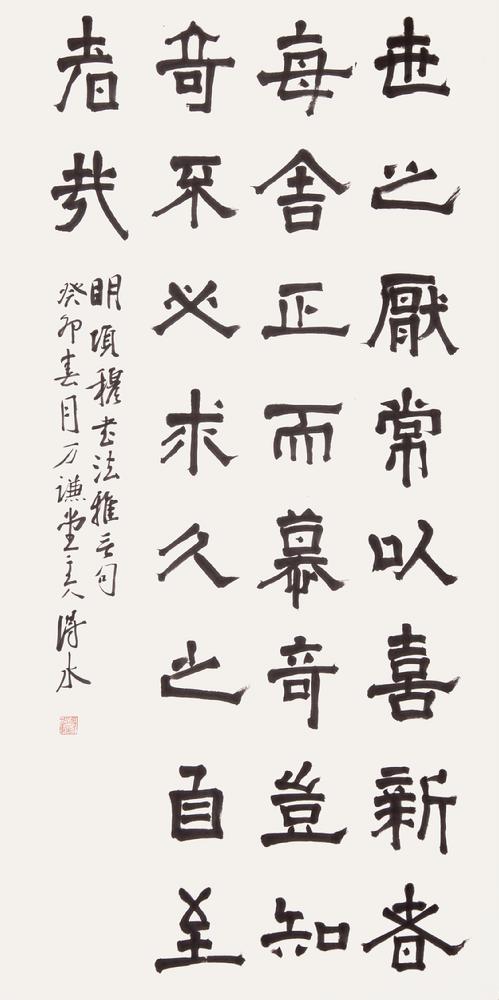 世之厭常以喜新者
每舍正而慕奇豈知
奇不必求久之自至
者哉
明項穆書法雅言句
癸卯春月万謙堂主人得水